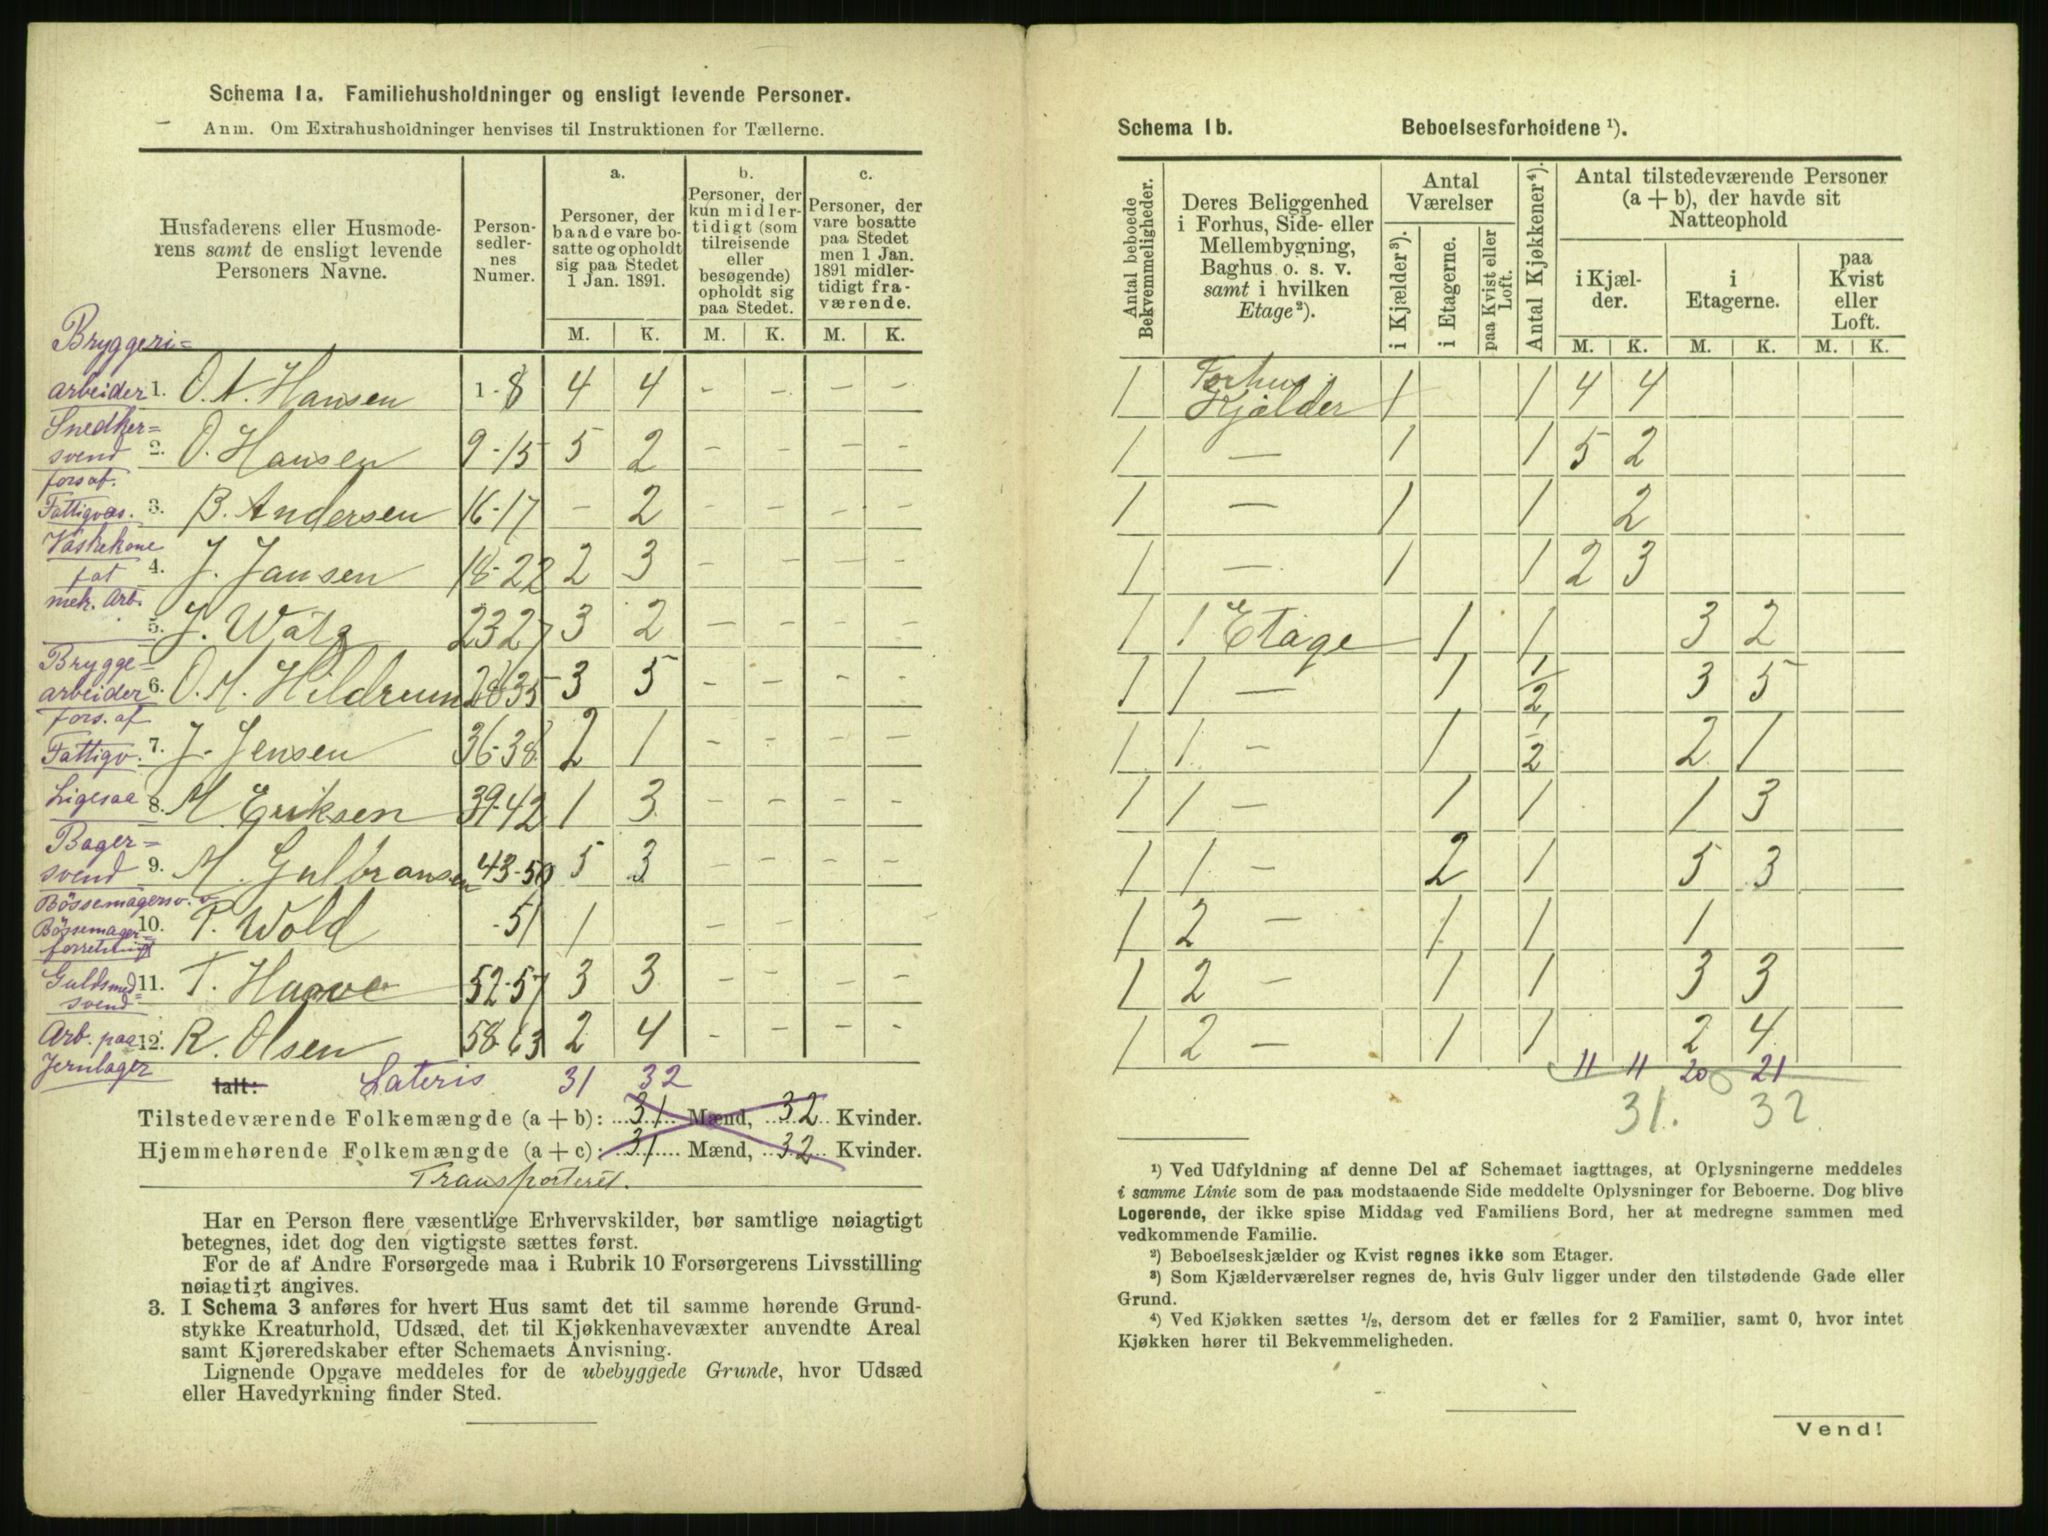 Schema 1a. Familiehusholdninger og ensligt levende Personer.
Anm. Om Extrahusholdninger henvises til Instruktionen for Tællerne.
Husfaderens eller Husmoderens samt de ensligt levende Personers Navne.
Person-sedlernes Numer.
a. Personer, der baade vare bosatte og opholdt sig paa Stedet 1 Jan. 1891.
b. Personer, der kun midlertidigt (som tilreisende eller besøgende) opholdt sig paa Stedet.
c. Personer, der vare bosatte paa Stedet men 1 Jan. 1891 midlertidigt fraværende.
M. K. M. K. M. K.
Bryggeri=
arbeider 1. O. A. Hansen 1-8 4 4 - - - -
Snedker=
svend 2. O. Hansen 9-15 5 2 - - - -
fors af.
Fattigvæs. 3. B. Andersen 16-17 - 2 - - - -
Vaskekone 4. J. Jansen 18-22 2 3 - - - -
mek. Arb. 5. J. Wätz 23 27 3 2 - - - -
Brygge=
arbeider 6. O. M. Hildrum 28 35 3 5 - - - -
fors. af
Fattigv. 7. J. Jensen 36-38 2 1 - - - -
Ligesaa 8. M. Eriksen 39-42 1 3 - - - -
Bager=
svend 9. M. Gulbransen 43-50 5 3 - - - -
Bössemagersv. o
Bössemager=
forretning 10. P. Wold -51 1 - - - -
Guldsmed=
svend 11. T. 52-57 3 3 - - - -
Arb. paa 12. R. Olsen 58-63 2 4 - - - -
Jernlager
Ialt: Lateris 31 32
Tilstedeværende Folkemængde (a + b): 31 Mænd, 32 Kvinder.
Hjemmehørende Folkemængde (a + c): 31 Mænd, 32 Kvinder.
Transporteret.
Har en Person flere væsentlige Erhvervskilder, bør samtlige nøiagtigt
betegnes, idet dog den vigtigste sættes først.
For de af Andre Forsørgede maa i Rubrik 10 Forsørgerens Livsstilling
nøiagtigt angives.
3. I Schema 3 anføres for hvert Hus samt det til samme hørende Grund-
stykke Kreaturhold, Udsæd, det til Kjøkkenhavevæxter anvendte Areal
samt Kjøreredskaber efter Schemaets Anvisning.
Lignende Opgave meddeles for de ubebyggede Grunde, hvor Udsæd
eller Havedyrkning finder Sted.
Schema 1b. Beboelsesforholdene ¹).
Antal beboede Bekvemmeligheder.
Deres Beliggenhed i Forhus, Side- eller Mellembygning, Baghus o. s. v. samt i hvilken Etage²).
Antal Værelser
i Kjælder ³).
i Etagerne.
paa Kvist eller Loft.
Antal Kjøkkener⁴).
Antal tilstedeværende Personer (a + b), der havde sit Natteophold
i Kjælder.
i Etagerne.
paa Kvist eller Loft.
M. K. M. K. M. K.
1 Forhus Kjælder 1 1 4 4
1 — 1 1 5 2
1 — 1 1 2
1 — 1 1 2 3
1 1 Etage 1 1 3 2
1 1 — 1 1/2 3 5
1 1 — 1 1/2 2 1
1 1 — 1 1 1 3
1 1 — 2 1 5 3
1 2 — 1 1 1
1 2 — 1 1 3 3
1 2 — 1 1 2 4
11 11 20 21
31. 32
¹) Ved Udfyldning af denne Del af Schemaet iagttages, at Oplysningerne meddeles
i samme Linie som de paa modstaaende Side meddelte Oplysninger for Beboerne. Dog blive
Logerende, der ikke spise Middag ved Familiens Bord, her at medregne sammen med
vedkommende Familie.
²) Beboelseskjælder og Kvist regnes ikke som Etager.
³) Som Kjælderværelser regnes de, hvis Gulv ligger under den tilstødende Gade eller
Grund.
⁴) Ved Kjøkken sættes ½, dersom det er fælles for 2 Familier, samt 0, hvor intet
Kjøkken hører til Bekvemmeligheden.
Vend!